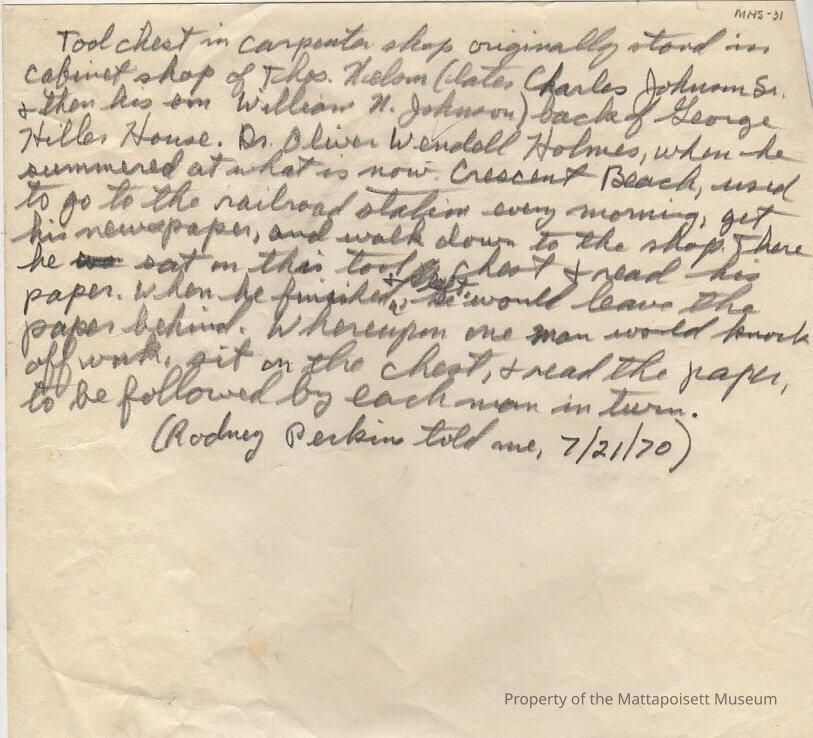 MHS-31
Tool chest in carpenter shop originally stood in
cabinet shop of Thos. Nelson (later Charles Johnson Sr.
& then his son William N. Johnson) back of George
Hiller House. Dr. Oliver Wendell Holmes, when he
summered at what is now Crescent Beach, used
to go to the railroad station every morning, get
his newspaper, and walk down to the shop. There
he sat on this tool chest & read his
paper. When he finished, & left, he would leave the
paper behind. Whereupon one man would knock
off work, sit on the chest, & read the paper,
to be followed by each man in turn.
(Rodney Perkins told me, 7/21/70)
Property of the Mattapoisett Museum